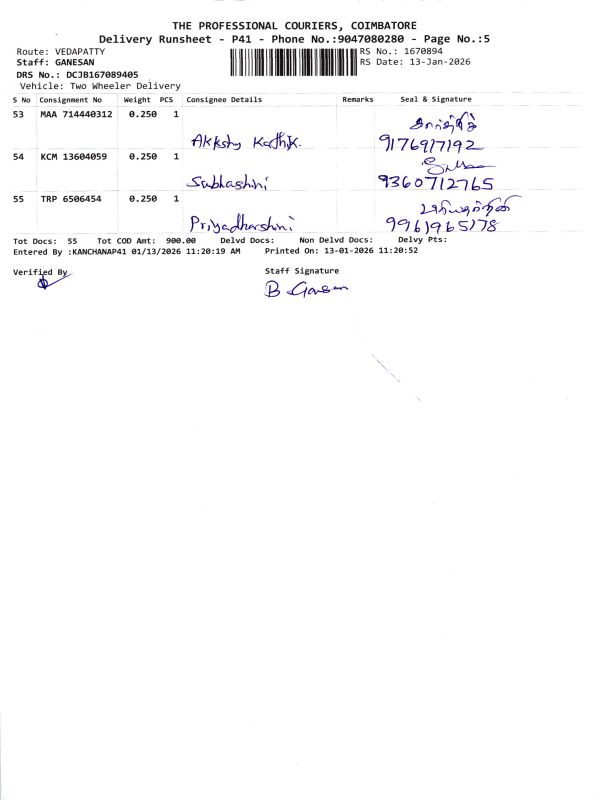 THE PROFESSIONAL COURIERS, COIMBATORE
Delivery Runsheet - P41 - Phone No.:9047080280 - Page No.:5
Route: VEDAPATTY RS No.: 1670894
Staff: GANESAN RS Date: 13-Jan-2026
DRS No.: DCJB167089405
Vehicle: Two Wheeler Delivery
S No Consignment No Weight PCS Consignee Details Remarks Seal & Signature
53 MAA 714440312 0.250 1
Akkshy Karthik. 9176917192
54 KCM 13604059 0.250 1
Subhashini 9360712765
55 TRP 6506454 0.250 1
Priyadharshini 9961965178
Tot Docs: 55 Tot COD Amt: 900.00 Delvd Docs: Non Delvd Docs: Delvy Pts:
Entered By :KANCHANAP41 01/13/2026 11:20:19 AM Printed On: 13-01-2026 11:20:52
Verified By Staff Signature
B. Ganesan